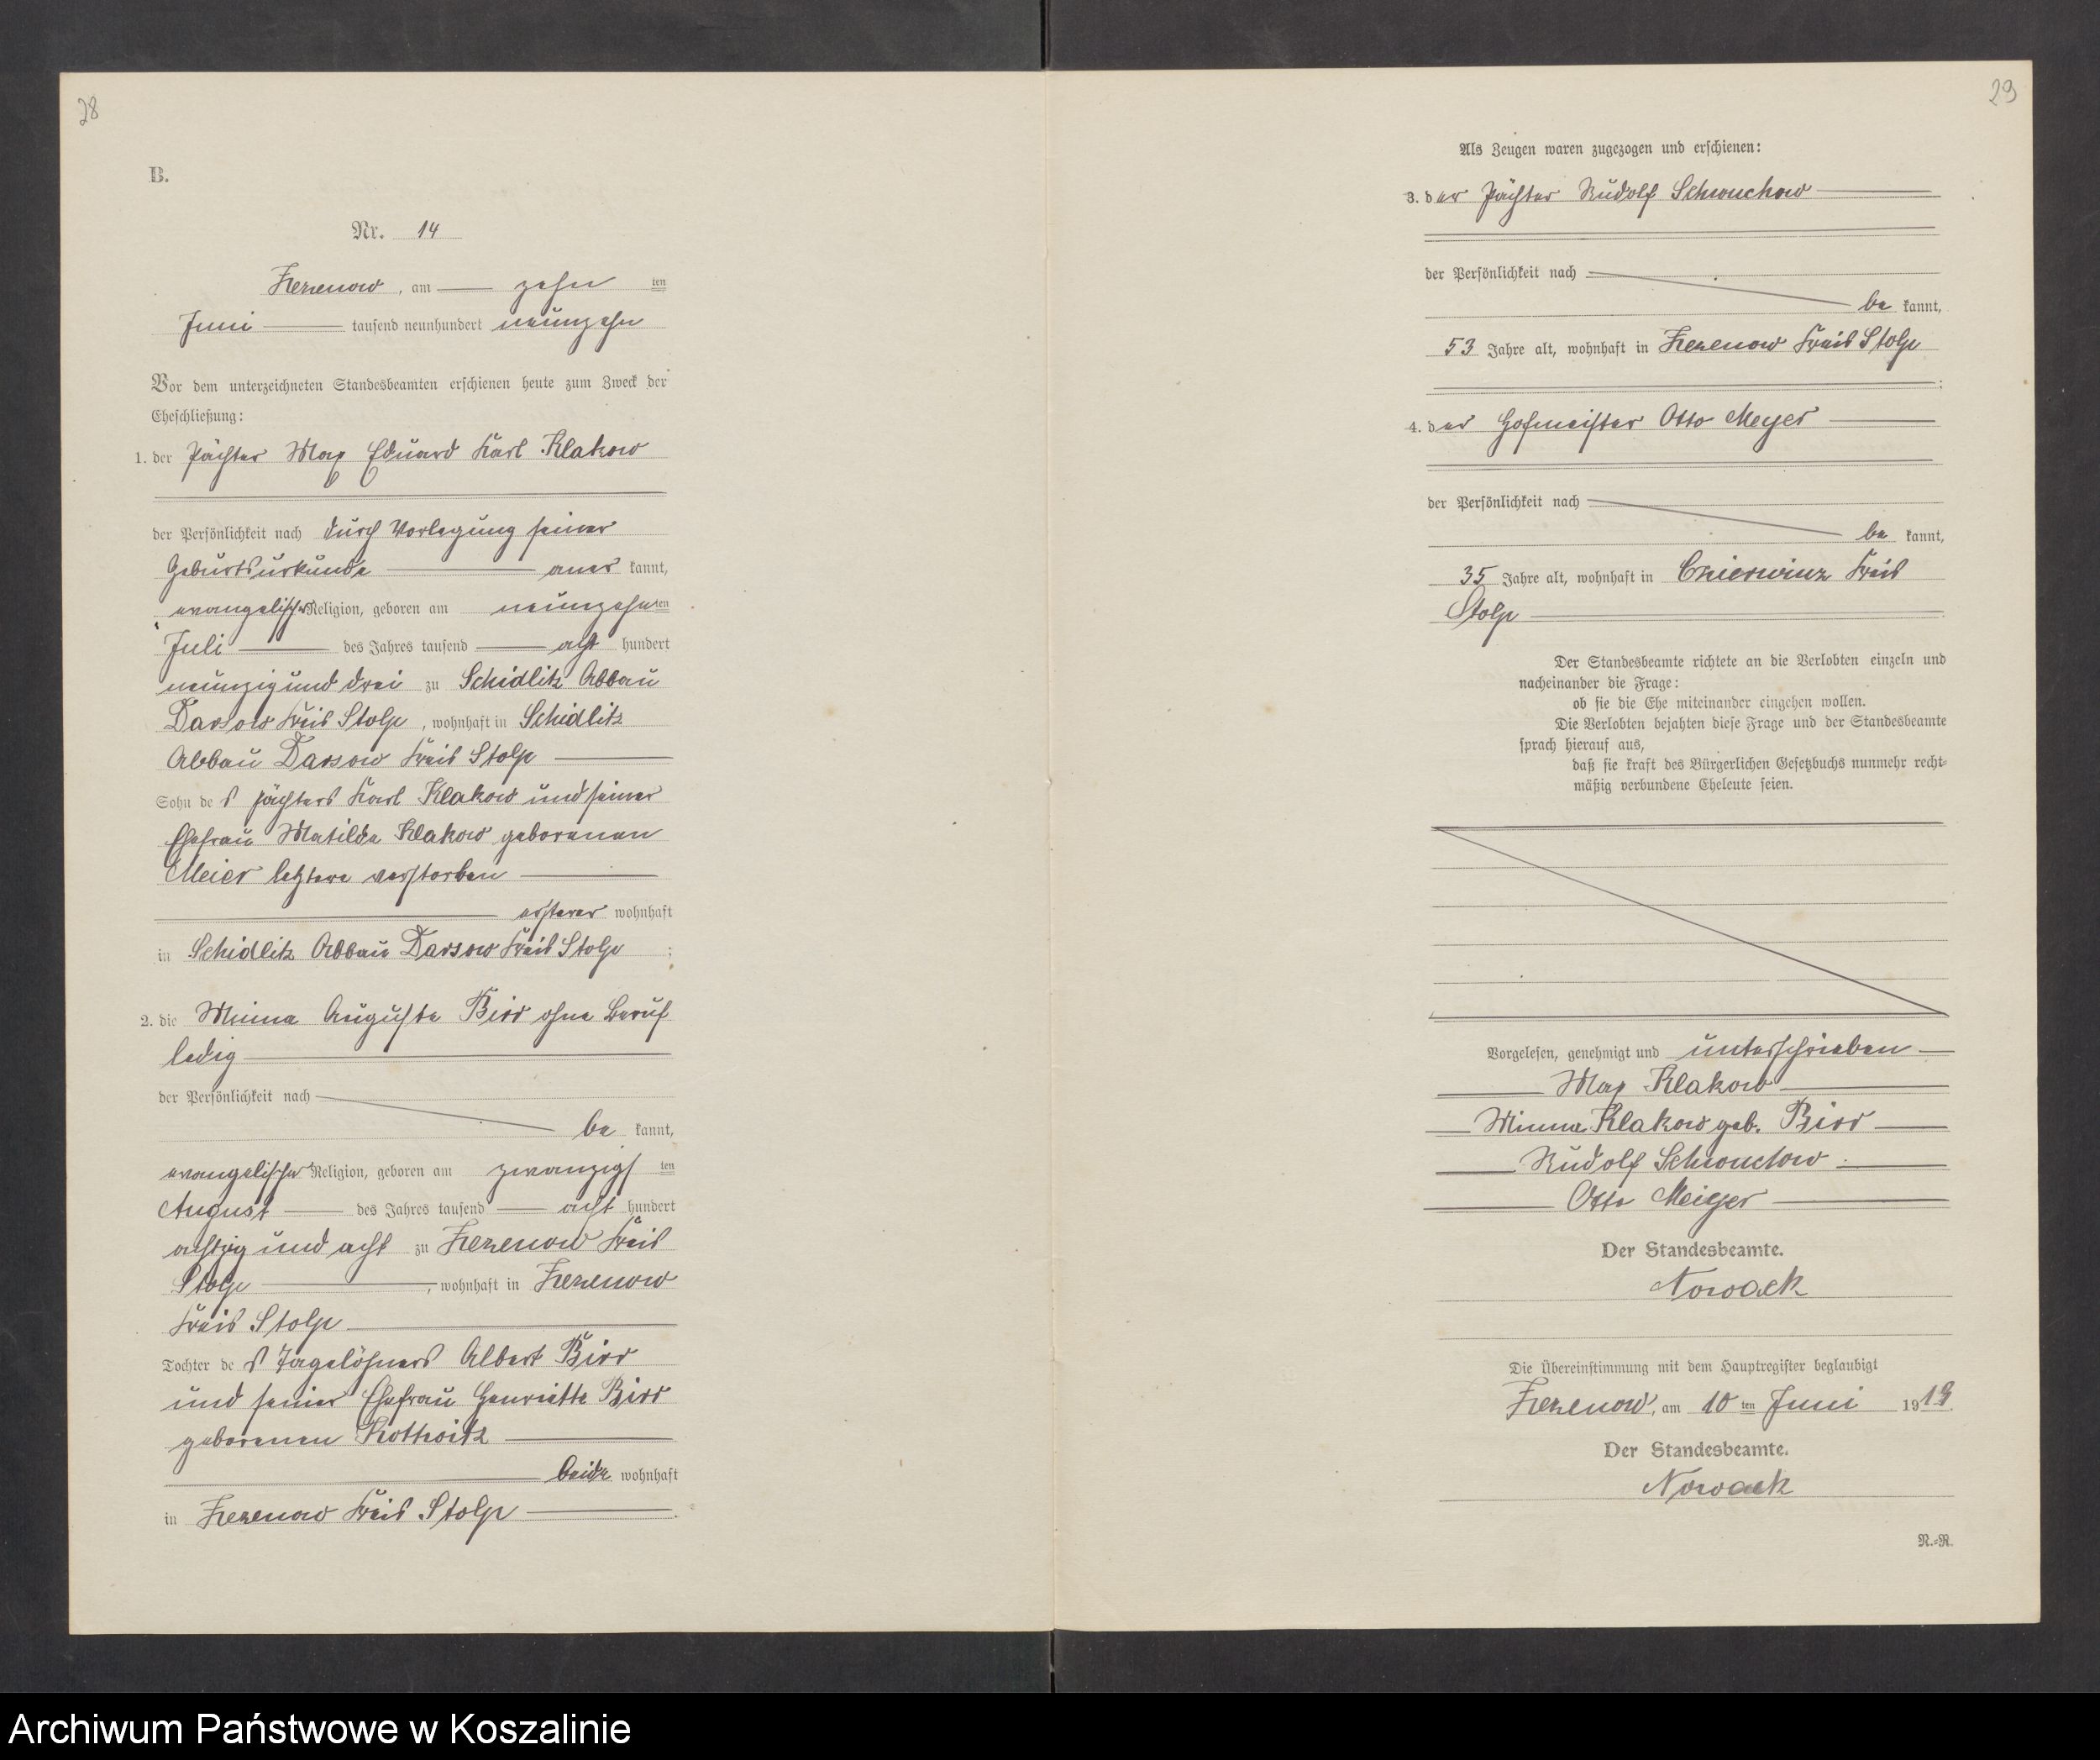 28
B.
Nr. 14
Zezenow, am zehn ten
Juni tausend neunhundert neunzehn
Vor dem unterzeichneten Standesbeamten erschienen heute zum Zweck der
Eheschließung:
1. der Pächter Max Eduard Karl Klakow
der Persönlichkeit nach durch Vorlegung seiner
Geburtsurkunde aner kannt,
evangelischer Religion, geboren am neunzehn ten
Juli des Jahres tausend acht hundert
neunzig und drei zu Schidlitz Abbau
Darsow Kreis Stolp, wohnhaft in Schidlitz
Abbau Darsow Kreis Stolp
Sohn des Pächters Karl Klakow und seiner
Ehefrau Matilde Klakow geborenen
Meier letztere verstorben
ersterer wohnhaft
in Schidlitz Abbau Darsow Kreis Stolp ;
2. die Minna Auguste Birr ohne Beruf
ledig
der Persönlichkeit nach
be kannt,
evangelischer Religion, geboren am zwanzigs ten
August des Jahres tausend acht hundert
achtzig und acht zu Zezenow Kreis
Stolp, wohnhaft in Zezenow
Kreis Stolp
Tochter des Tagelöhners Albert Birr
und seiner Ehefrau Henriette Birr
geborenen
beide wohnhaft
in Zezenow Kreis Stolp.
29
Als Zeugen waren zugezogen und erschienen:
3. der Pächter Rudolf Schwuchow
der Persönlichkeit nach
be kannt,
53 Jahre alt, wohnhaft in Zezenow Kreis Stolp
;
4. der Hofmeister Otto Meyer
der Persönlichkeit nach
be kannt,
35 Jahre alt, wohnhaft in Kreis
Stolp
Der Standesbeamte richtete an die Verlobten einzeln und
nacheinander die Frage:
ob sie die Ehe miteinander eingehen wollen.
Die Verlobten bejahten diese Frage und der Standesbeamte
sprach hierauf aus,
daß sie kraft des Bürgerlichen Gesetzbuchs nunmehr recht-
mäßig verbundene Eheleute seien.
Vorgelesen, genehmigt und unterschrieben
Max Klakow
Minna Klakow geb. Birr
Rudolf Schwuchow
Otto Meiyer
Der Standesbeamte.
Nowack
Die Übereinstimmung mit dem Hauptregister beglaubigt
Zezenow, am 10 ten Juni 1919.
Der Standesbeamte.
Nowack
N.-R.
Archiwum Państwowe w Koszalinie